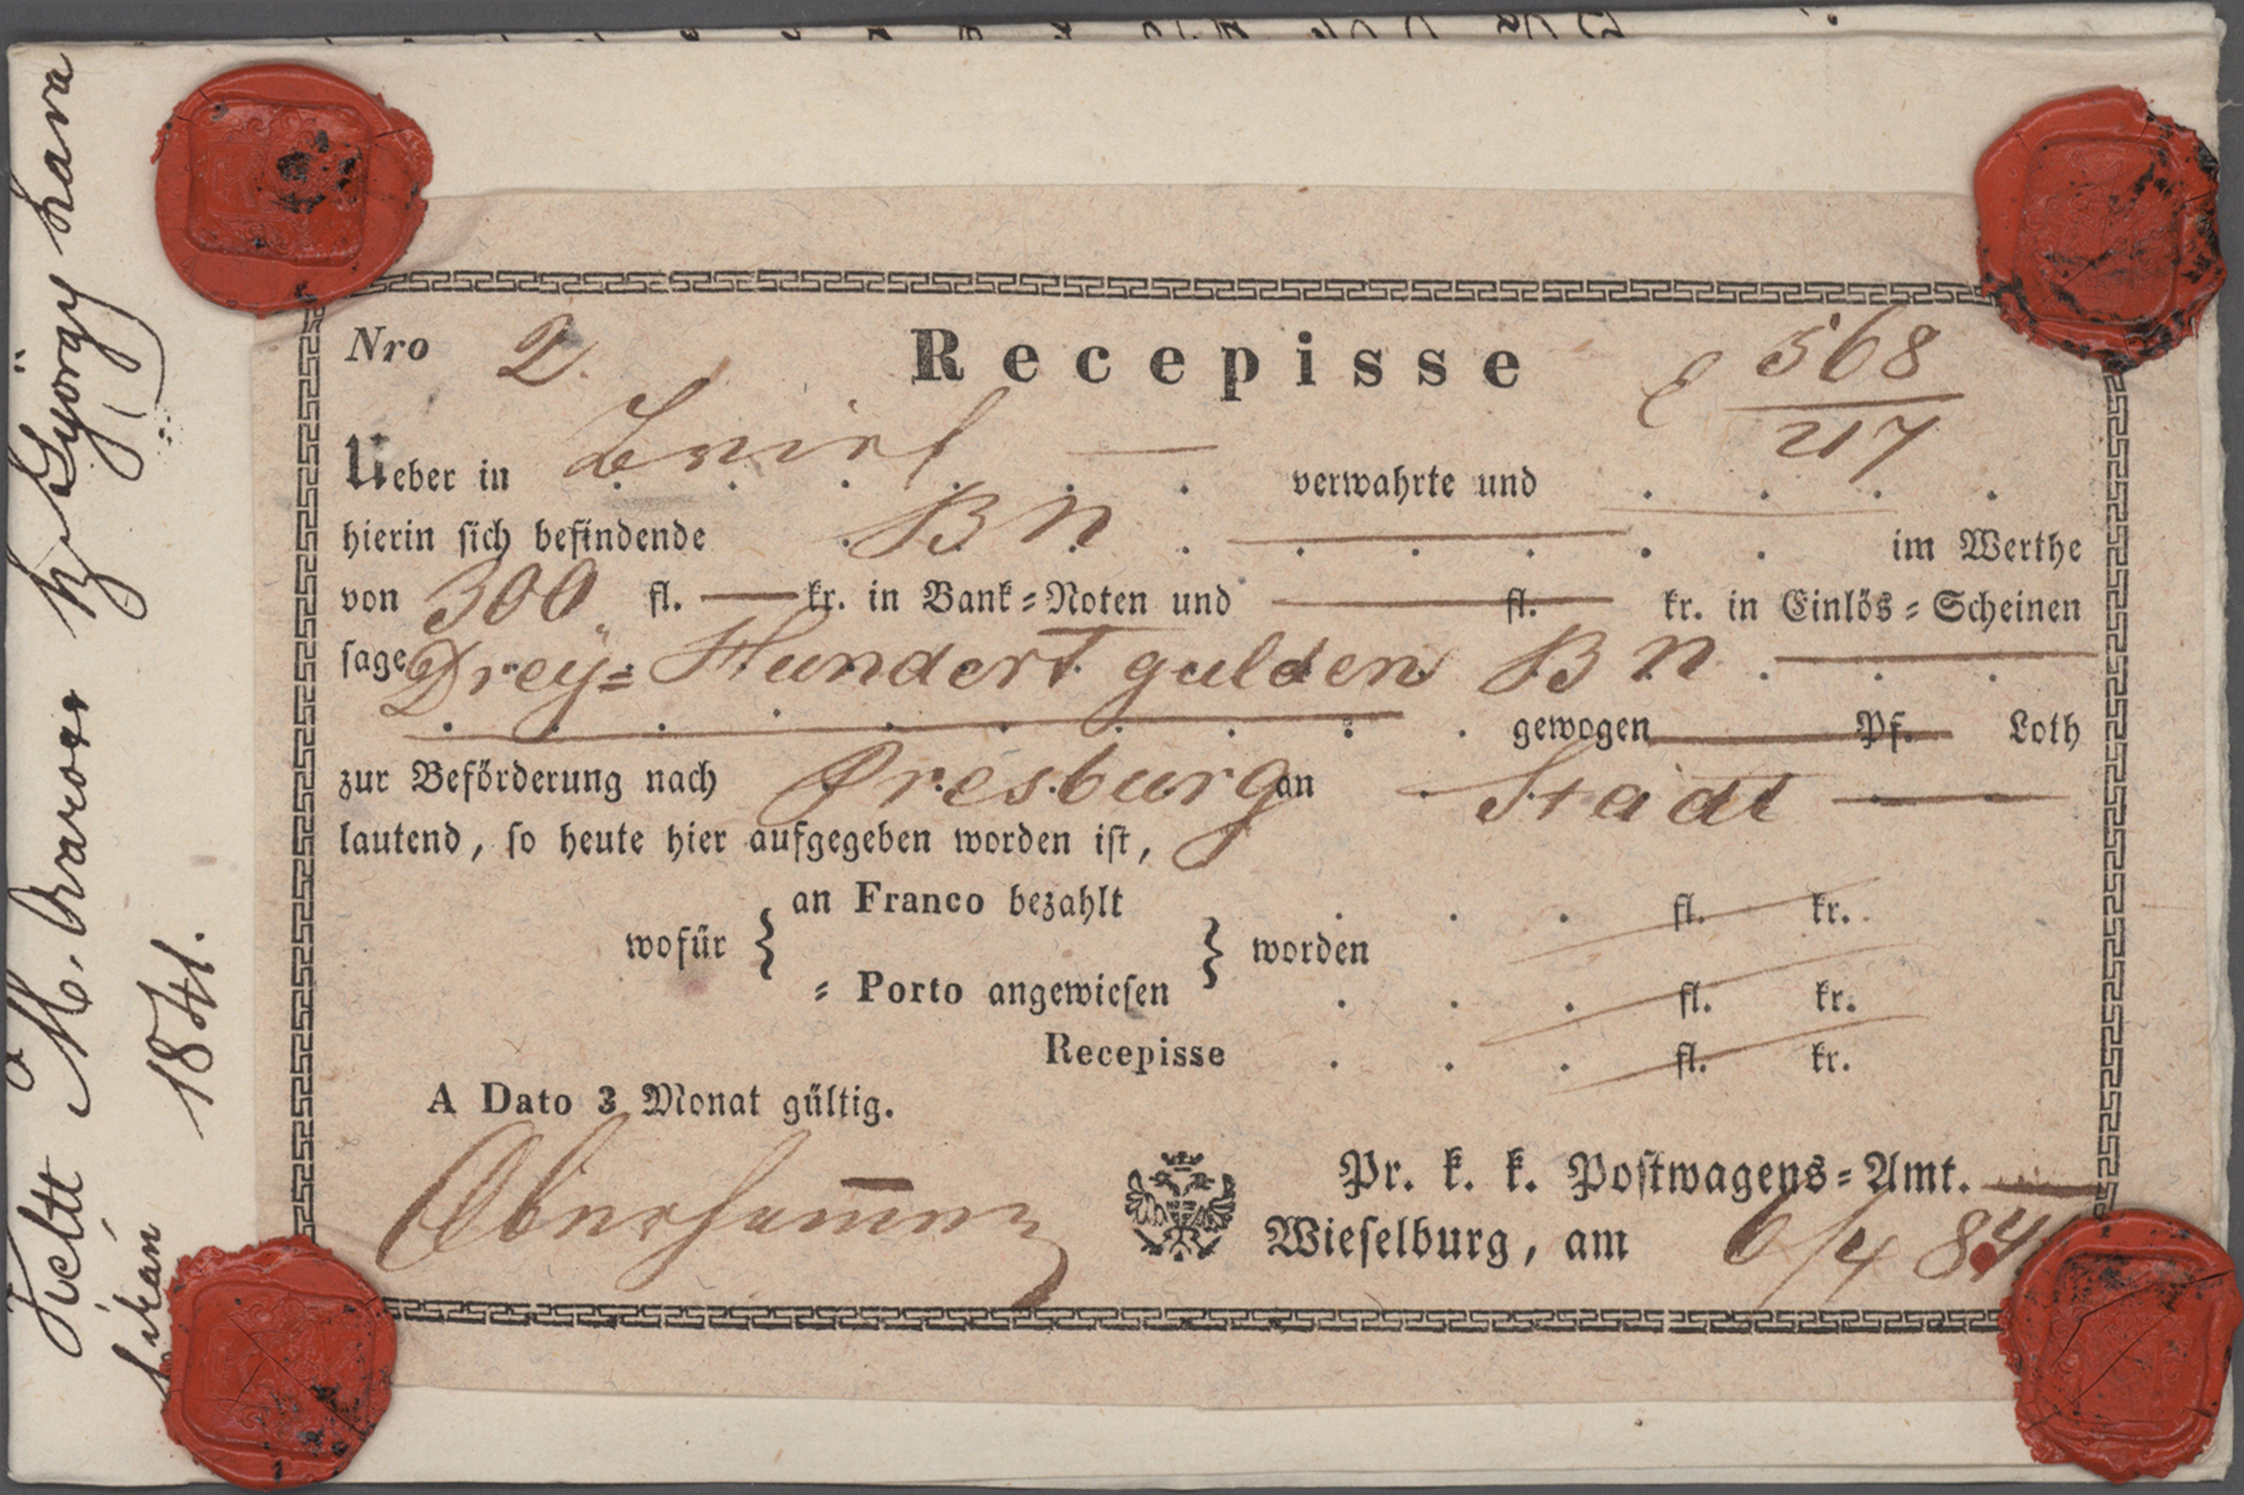 Nro 2. Recepisse 568
217
Ueber in Brief — verwahrte und . . . .
hierin sich befindende BN . . . . . . im Werthe
von 300 fl. — kr. in Bank-Noten und — fl. kr. in Einlös-Scheinen
sage Drey-Hundert gulden BN . . .
gewogen Pf. Loth
zur Beförderung nach Presburg an Stadt —
lautend, so heute hier aufgegeben worden ist,
an Franco bezahlt . . . fl. kr.
wofür } } worden
= Porto angewiesen . . . fl. kr.
Recepisse . . . fl. kr.
A Dato 3 Monat gültig.
Pr. k. k. Postwagens-Amt.
Wieselburg, am 6/4 84
Kelt M. Óvárott Sz György hava
1841.